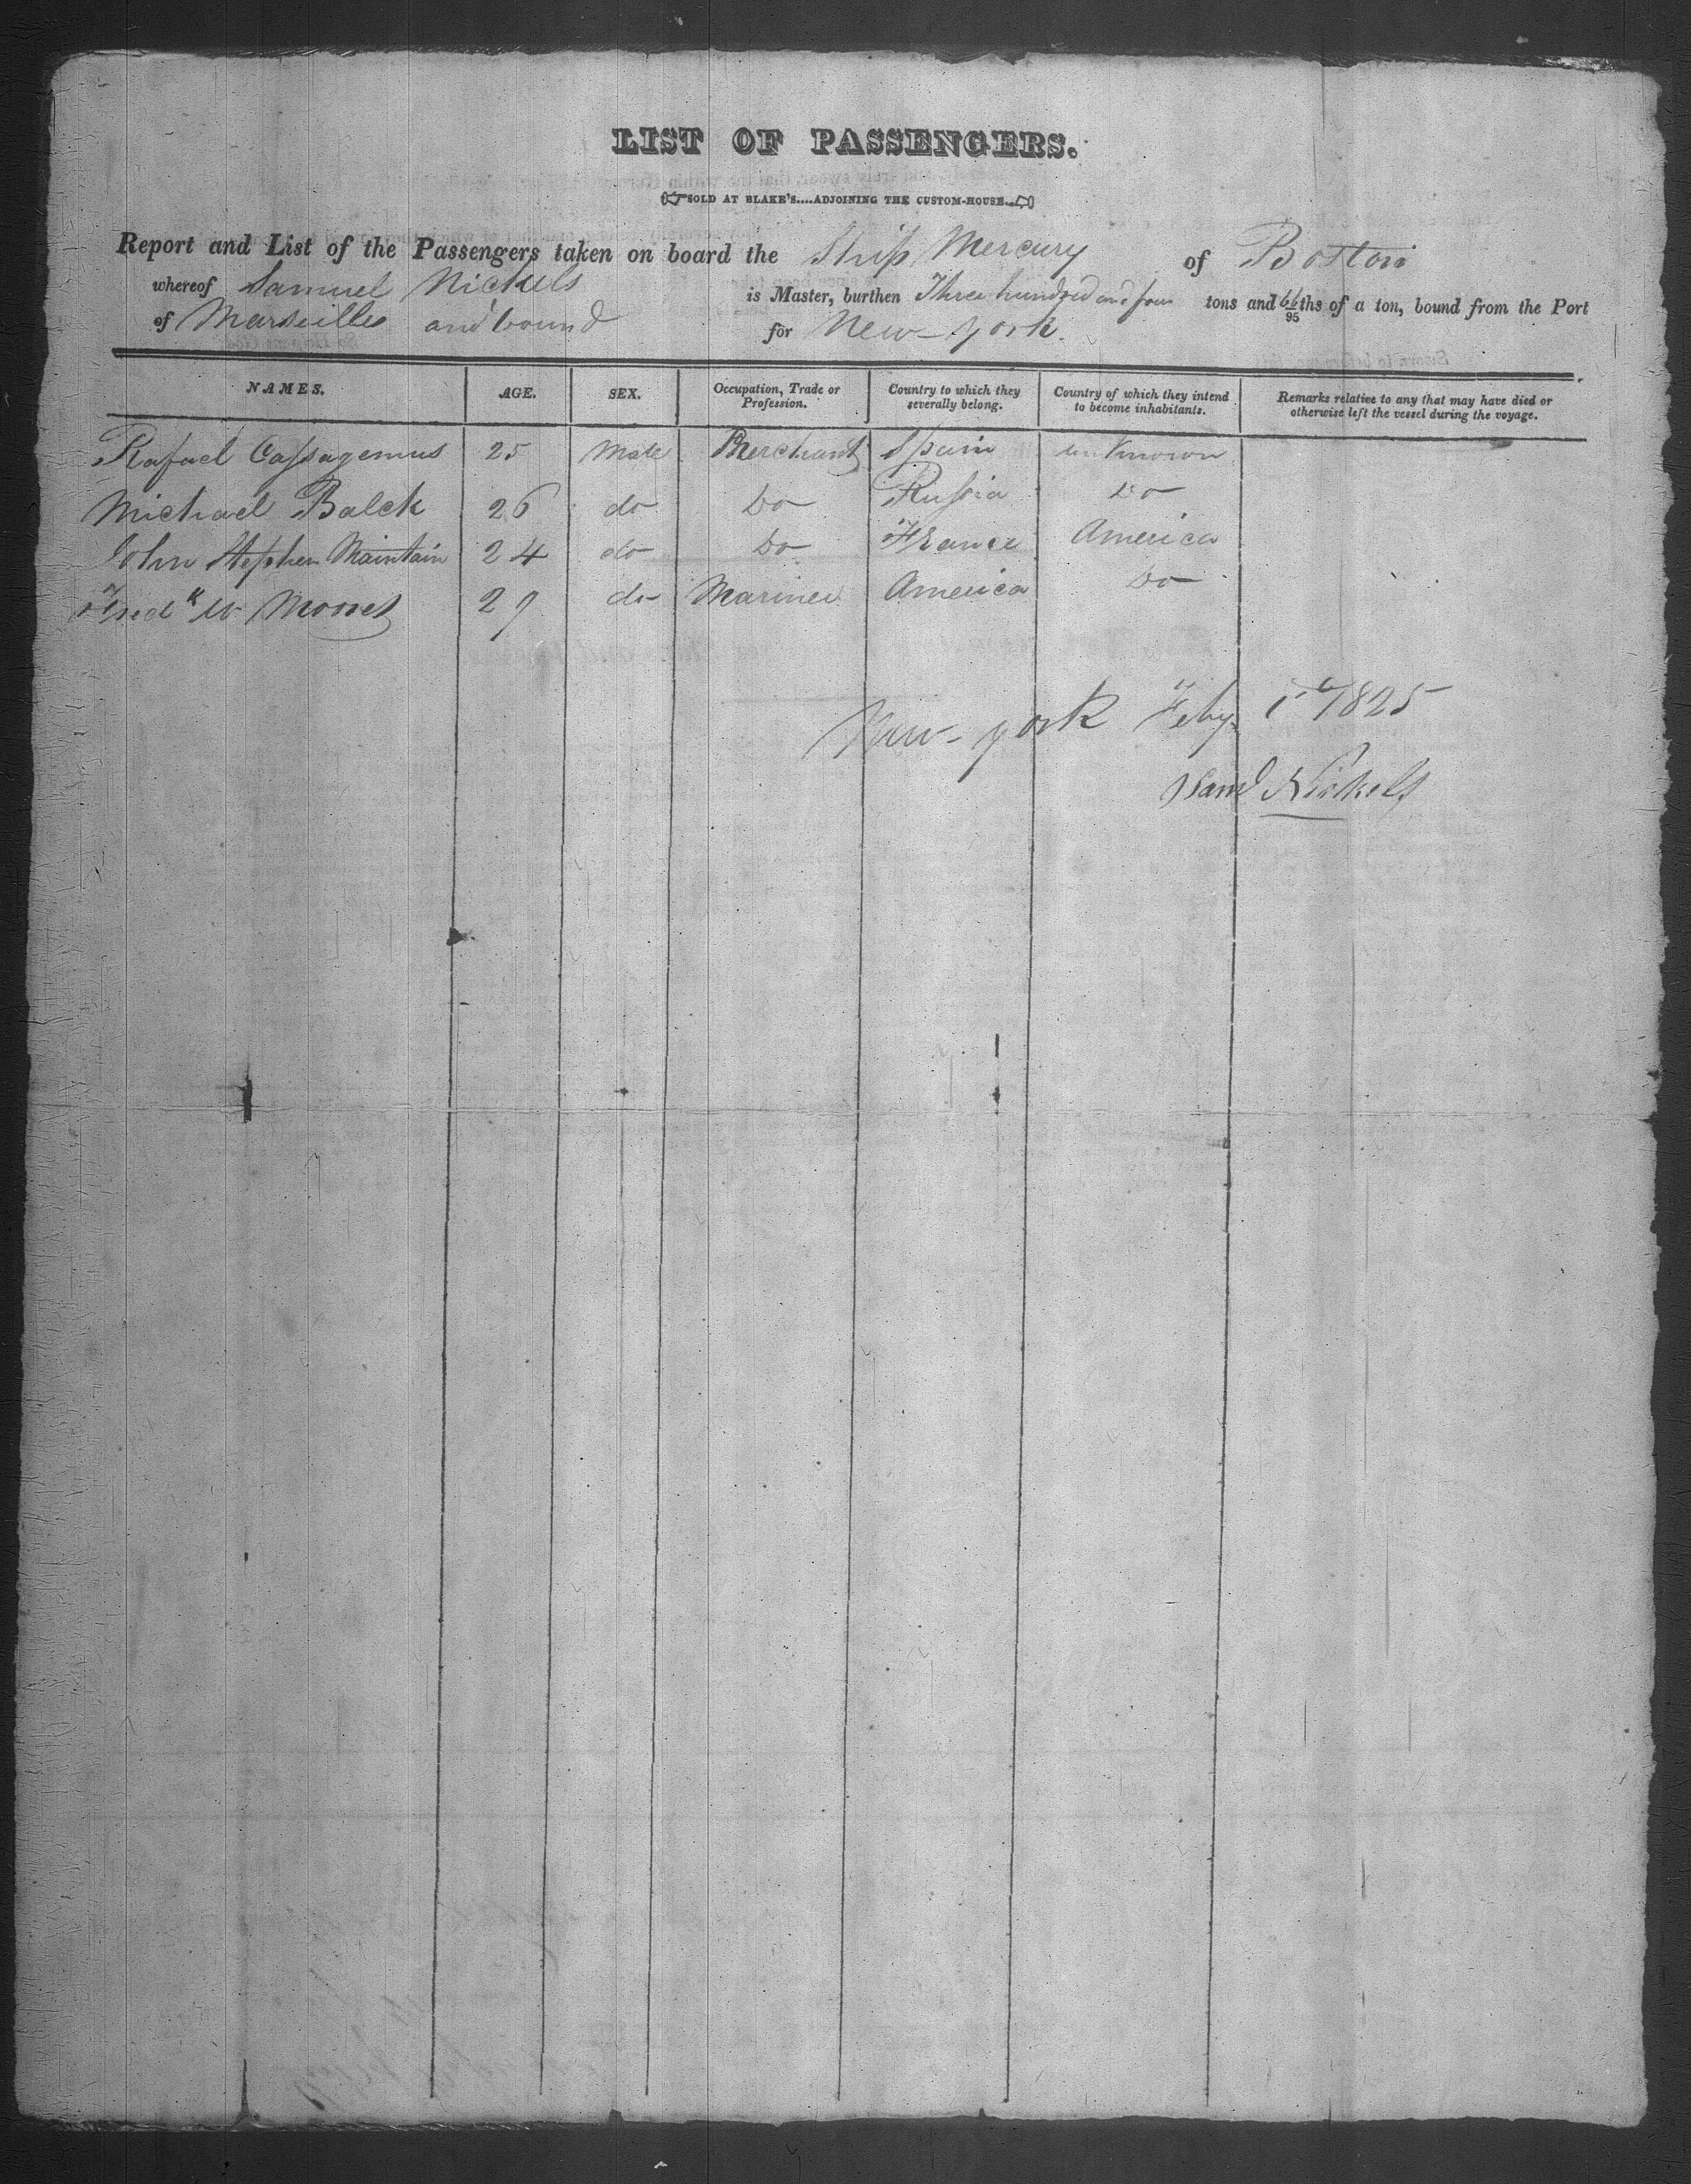 LIST OF PASSENGERS.
SOLD AT BLAKE'S....ADJOINING THE CUSTOM-HOUSE.
Report and List of the Passengers taken on board the Ship Mercury of Boston
whereof Samuel Nickels is Master, burthen Three hundred and four tons and 66/95ths of a ton, bound from the Port
of Marseilles and bound for New-York.
NAMES. AGE. SEX. Occupation, Trade or Profession. Country to which they severally belong. Country of which they intend to become inhabitants. Remarks relative to any that may have died or otherwise left the vessel during the voyage.
Rafael Cassagemus 25 Male Merchant Spain unknown
Michael Balck 26 do Do Russia Do
John Stephen Maintain 24 do Do France America
Fredk W 29 do Mariner America Do
New-york Feby 1825
Saml Nickels